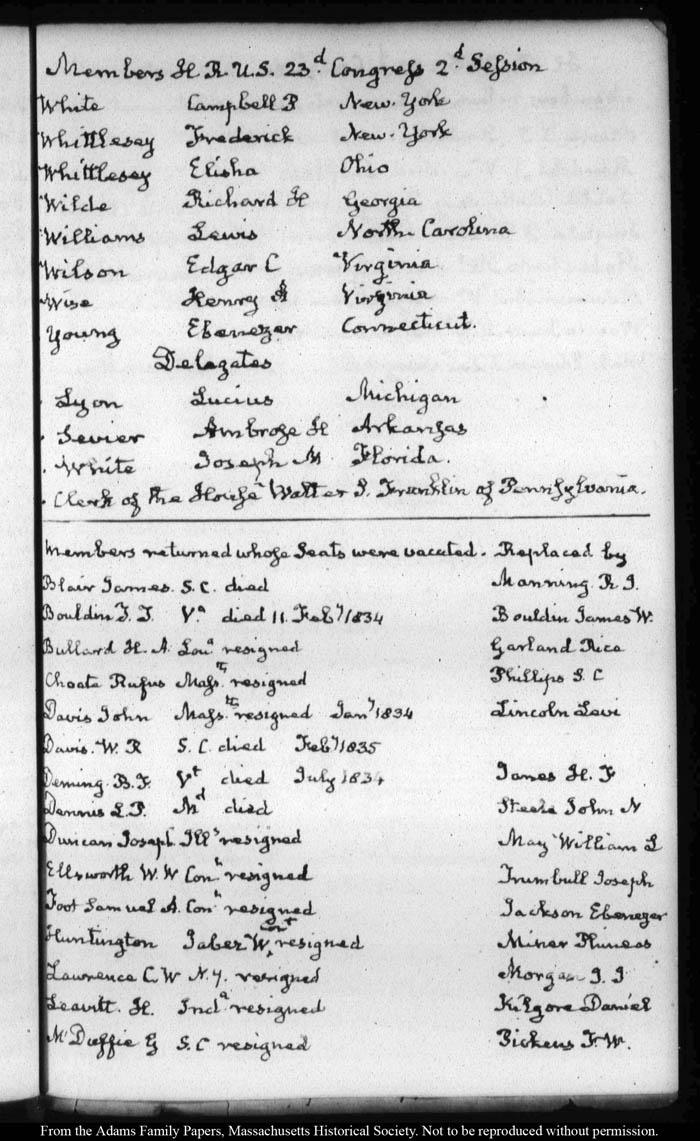 Members H. R. U.S. 23d Congress 2d Session
White Campbell P New-York
Whittlesey Frederick New-York
Whittlesey Elisha Ohio
Wilde Richard H Georgia
Williams Lewis North-Carolina
Wilson Edgar C Virginia
Wise Henry A Virginia
Young Ebenezer Connecticut.
Delegates
Lyon Lucius Michigan
Sevier Ambrose H Arkansas
White Joseph M Florida.
Clerk of the House Walter S. Franklin of Pennsylvania.
Members returned whose Seats were vacated. Replaced by
Blair James. S. C. died Manning R. I.
Bouldin T. T. Va died 11. Feby 1834 Bouldin James W.
Bullard H. A. Loua resigned Garland Rice
Choate Rufus Massts resigned Phillips S. C
Davis John Massts resigned Jany 1834 Lincoln Levi
Davis. W. R S. C. died Feby 1835
Deming. B. F. Vt died July 1834 Janes H. F
Dennis L. P. Md died Steele John N
Duncan Joseph Ills resigned May William L
Ellsworth W. W Conn resigned Trumbull Joseph
Foot Samuel A. Conn resigned Jackson Ebenezer
Huntington Jabez W. Cont resigned Miner Phineas
Lawrence C. W N. Y. resigned Morgan J. J
Leavitt. H. Inda resigned Kilgore Daniel
McDuffie G S. C resigned Pickens F. W.
From the Adams Family Papers, Massachusetts Historical Society. Not to be reproduced without permission.